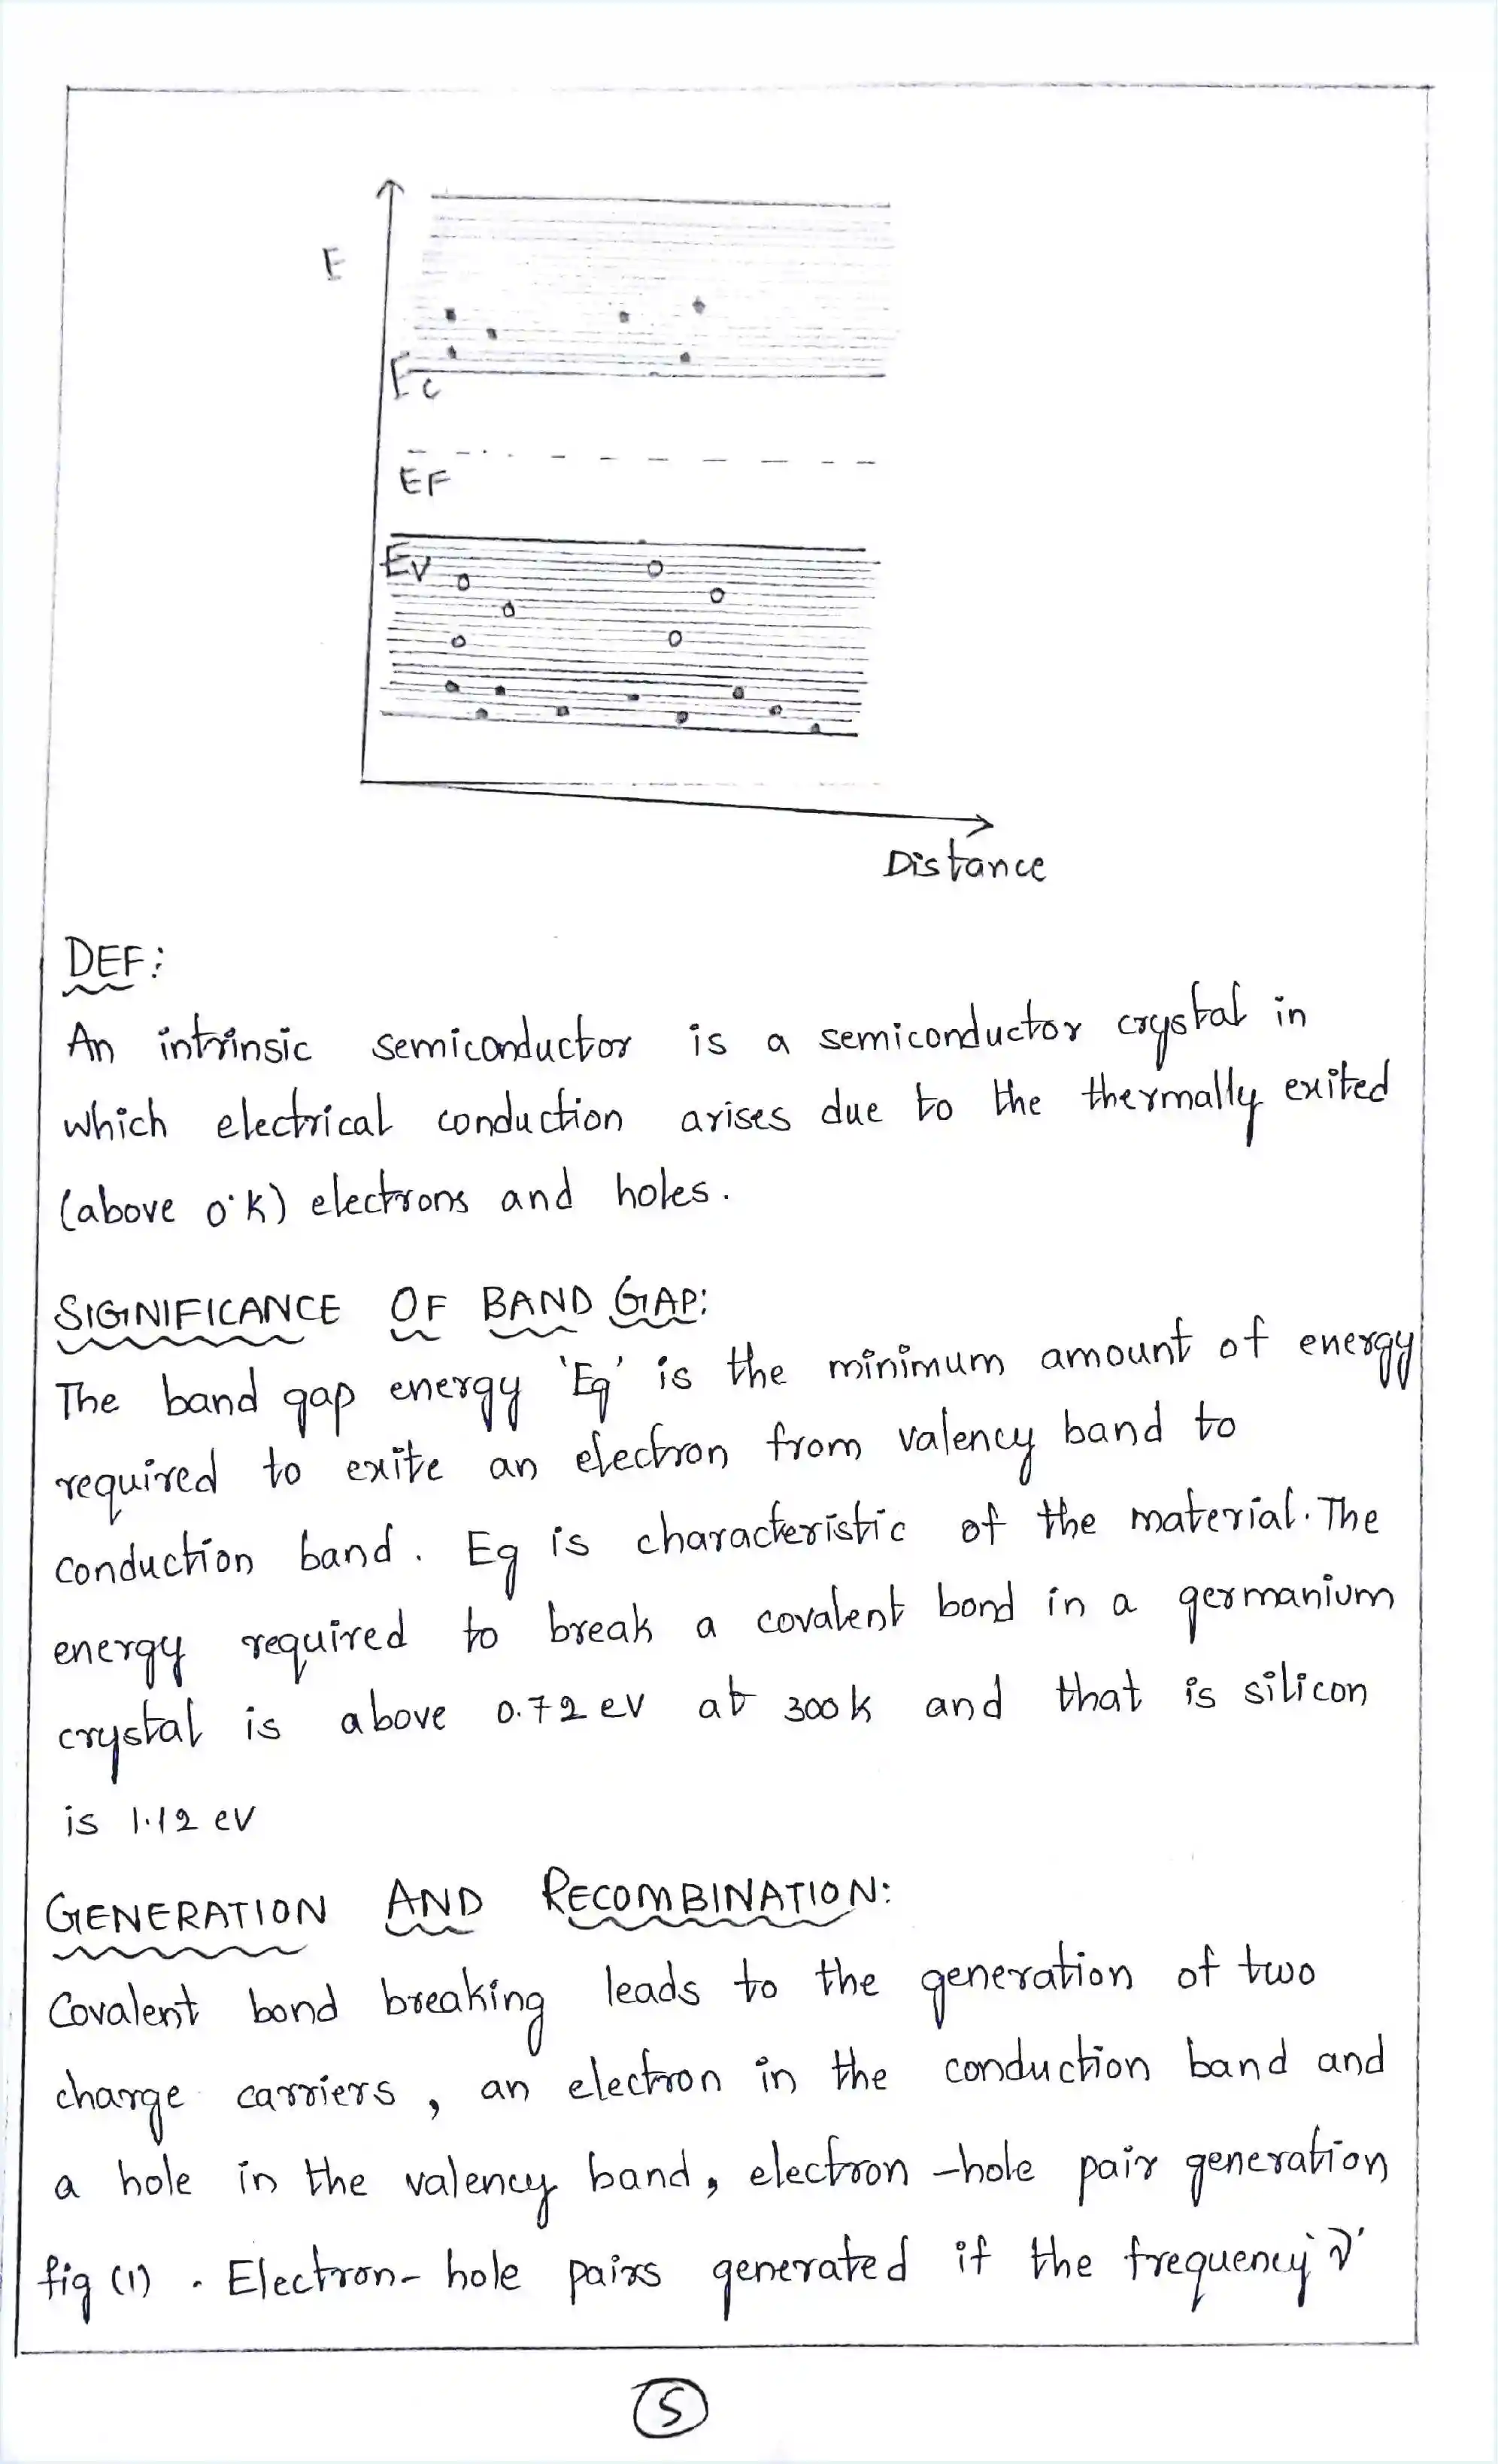 E
Ec
EF
Ev
Distance
DEF:
An intrinsic semiconductor is a semiconductor crystal in
which electrical conduction arises due to the thermally exited
(above 0°K) electrons and holes.
SIGNIFICANCE OF BAND GAP:
The band gap energy 'Eg' is the minimum amount of energy
required to exite an electron from valency band to
conduction band. Eg is characteristic of the material. The
energy required to break a covalent bond in a germanium
crystal is above 0.72 eV at 300k and that is silicon
is 1.12 eV
GENERATION AND RECOMBINATION:
Covalent bond breaking leads to the generation of two
charge carriers, an electron in the conduction band and
a hole in the valency band, electron-hole pair generation
fig (1). Electron-hole pairs generated if the frequency 'ν'
5